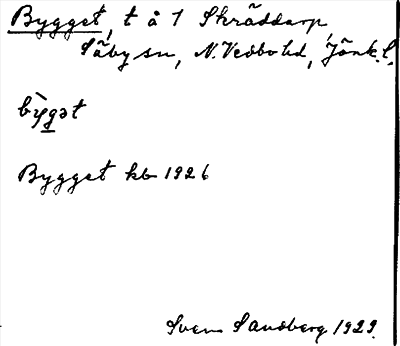 Bygget, t å 1 Skräddarp
Säby sn, N. Vedbo hd, Jönk. l.
bỳgət
Bygget kb 1926
Sven Sandberg 1929.